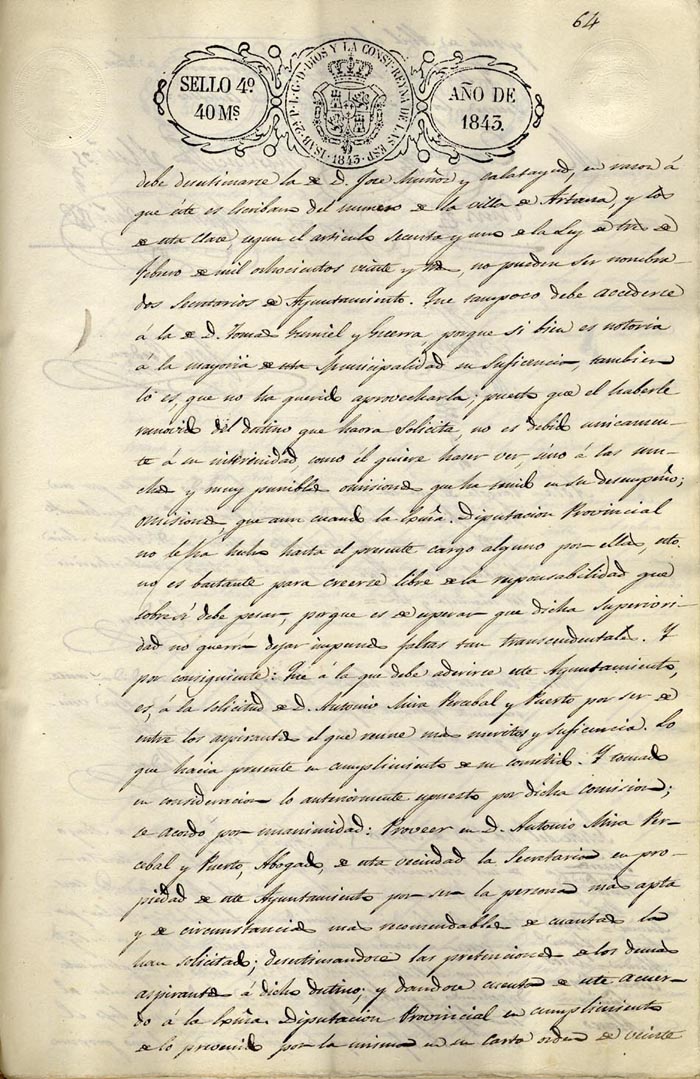 64
SELLO 4º
40 Ms
ISAB. 2ª P. L. G. D. DIOS Y LA CONST. REYNA DE LAS ESP.
1843.
AÑO DE
1843.
debe desestimarse la de D. Jose Muñoz y Calatayud, en razon á
que éste es Escribano del numero de la villa de Artana, y los
de esta clase segun el articulo sesenta y uno de la Ley de tres de
febrero de mil ochocientos veinte y tres, no pueden ser nombra-
dos Secretarios de Ayuntamiento. Que tampoco debe accederse
á la de D. Tomas y Guerra, porque si bien es notoria
á la mayoria de esta Municipalidad su suficencia, tambien
lo es, que no ha querido aprovecharla; puesto que el haberle
removido del destino que haora solicita, no es debido unicamen-
te á su interinidad, como él quiere haser ver, sino á las mu-
chas y muy punibles omisiones que ha tenido en su desempeño;
omisiones que aun cuando la Exma. Diputacion Provincial
no le ha hecho hasta el presente cargo alguno por ellas, esto
no es bastante para creerse libre de la responsabilidad que
sobre sí debe pesar, porque es de esperar que dicha Superiori-
dad no querrá dejar impunes faltas tan transcendentales. Y
por consiguiente: Que á la que debe adirirse este Ayuntamiento,
es, á la solicitud de D. Antonio Mira Percebal y Puerto por ser de
entre los aspirantes el que reune más meritos y suficencia. Lo
que hacia presente en cumplimiento de su cometido. Y tomado
en consideracion lo anteriormente espuesto por dicha comision;
se acordo por unanimidad: Proveer en D. Antonio Mira Per-
cebal y Puerto, Abogado, de esta vecindad la Secretaria en pro-
piedad de este Ayuntamiento por ser la persona más apta
y de circunstancias más recomendables de cuantos la
han solicitado; desestimandose las pretenciones de los demas
aspirantes á dicho destino; y dandose cuenta de este acuer-
do á la Exma. Diputacion Provincial en cumplimiento
de lo prevenido por la misma en su carta orden de veinte